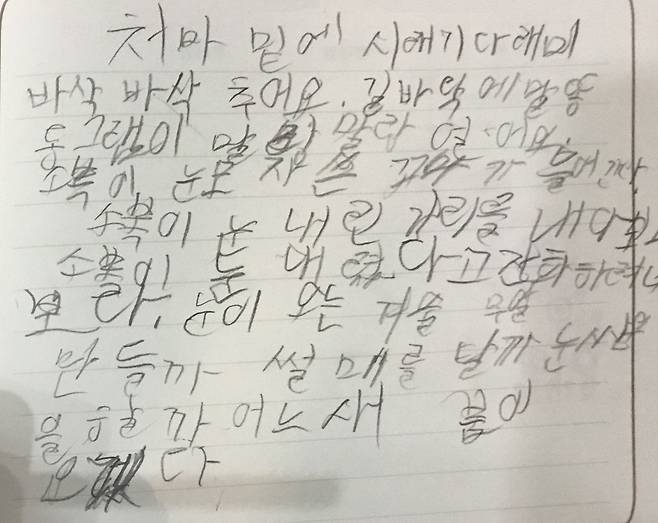 처마 밑에 시래기 다래미
바삭 바삭 추어요. 길바닥에 말똥
동그램이 말랑 말랑 얼어요.
소복이 눈
소복이 눈 내린 거리를 내다보
소복이 눈 내렸다고 전화하려
보라. 눈이 오는 겨울
만들까 썰매를 탈까 눈싸움
을 할까 어느새 봄이
오 다